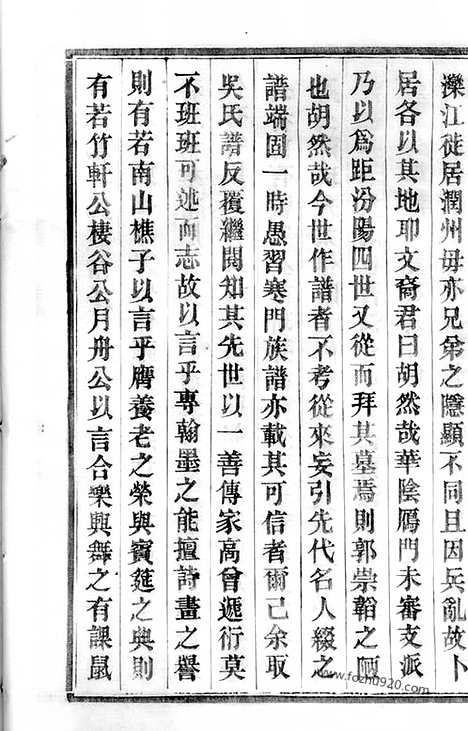 濼江徙居潤州毋亦兄弟之隱顯不同且因兵亂故卜
居各以其地耶文裔君曰胡然哉華陰鴈門未審支派
乃以爲距汾陽四世又從而拜其墓焉則郭崇韜之陋
也胡然哉今世作譜者不考從來妄引先代名人綴之
譜端固一時愚習寒門族譜亦載其可信者爾已余取
吳氏譜反覆繼閱知其先世以一善傳家高曾遞衍莫
不班班可述而志故以言乎專翰墨之能擅詩畫之譽
則有若南山樵子以言乎膺養老之榮與賓筵之典則
有若竹軒公棲谷公月舟公以言合樂與舞之有課鼠
www.fozhu920.com